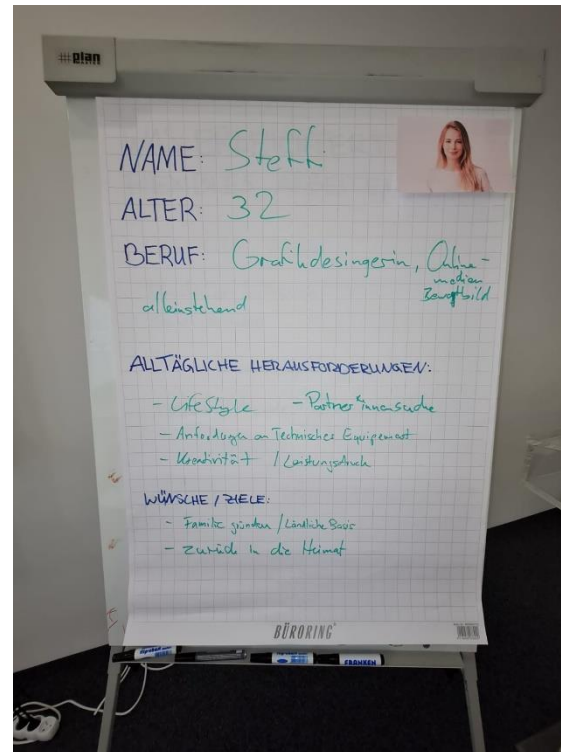 plan
NAME: Steffi
ALTER: 32
BERUF: Grafikdesingerin, Online-
medien
Bewegtbild
alleinstehend
ALLTÄGLICHE HERAUSFORDERUNGEN:
- LifeStyle - Partner*innensuche
- Anforderungen an Technisches Equipement
- Kreativität / Leistungsdruck
WÜNSCHE / ZIELE:
- Familie gründen / Ländliche Basis
- zurück in die Heimat
BÜRORING
FRANKEN